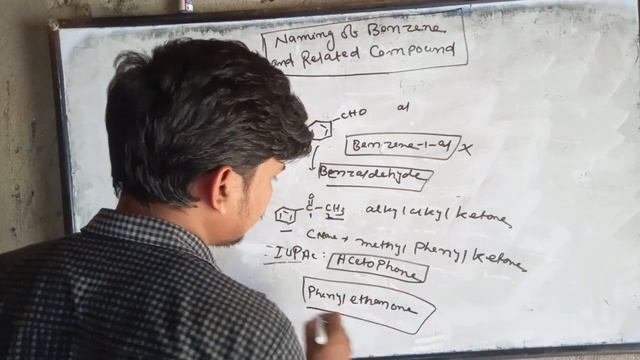 Naming of Benzene
and Related Compound
CHO al
Benzene-1-al X
Benzaldehyde
O
C - CH3 alkyl alkyl ketone
methyl phenyl ketone
IUPAC: Acetophone
Phenyl ethanone